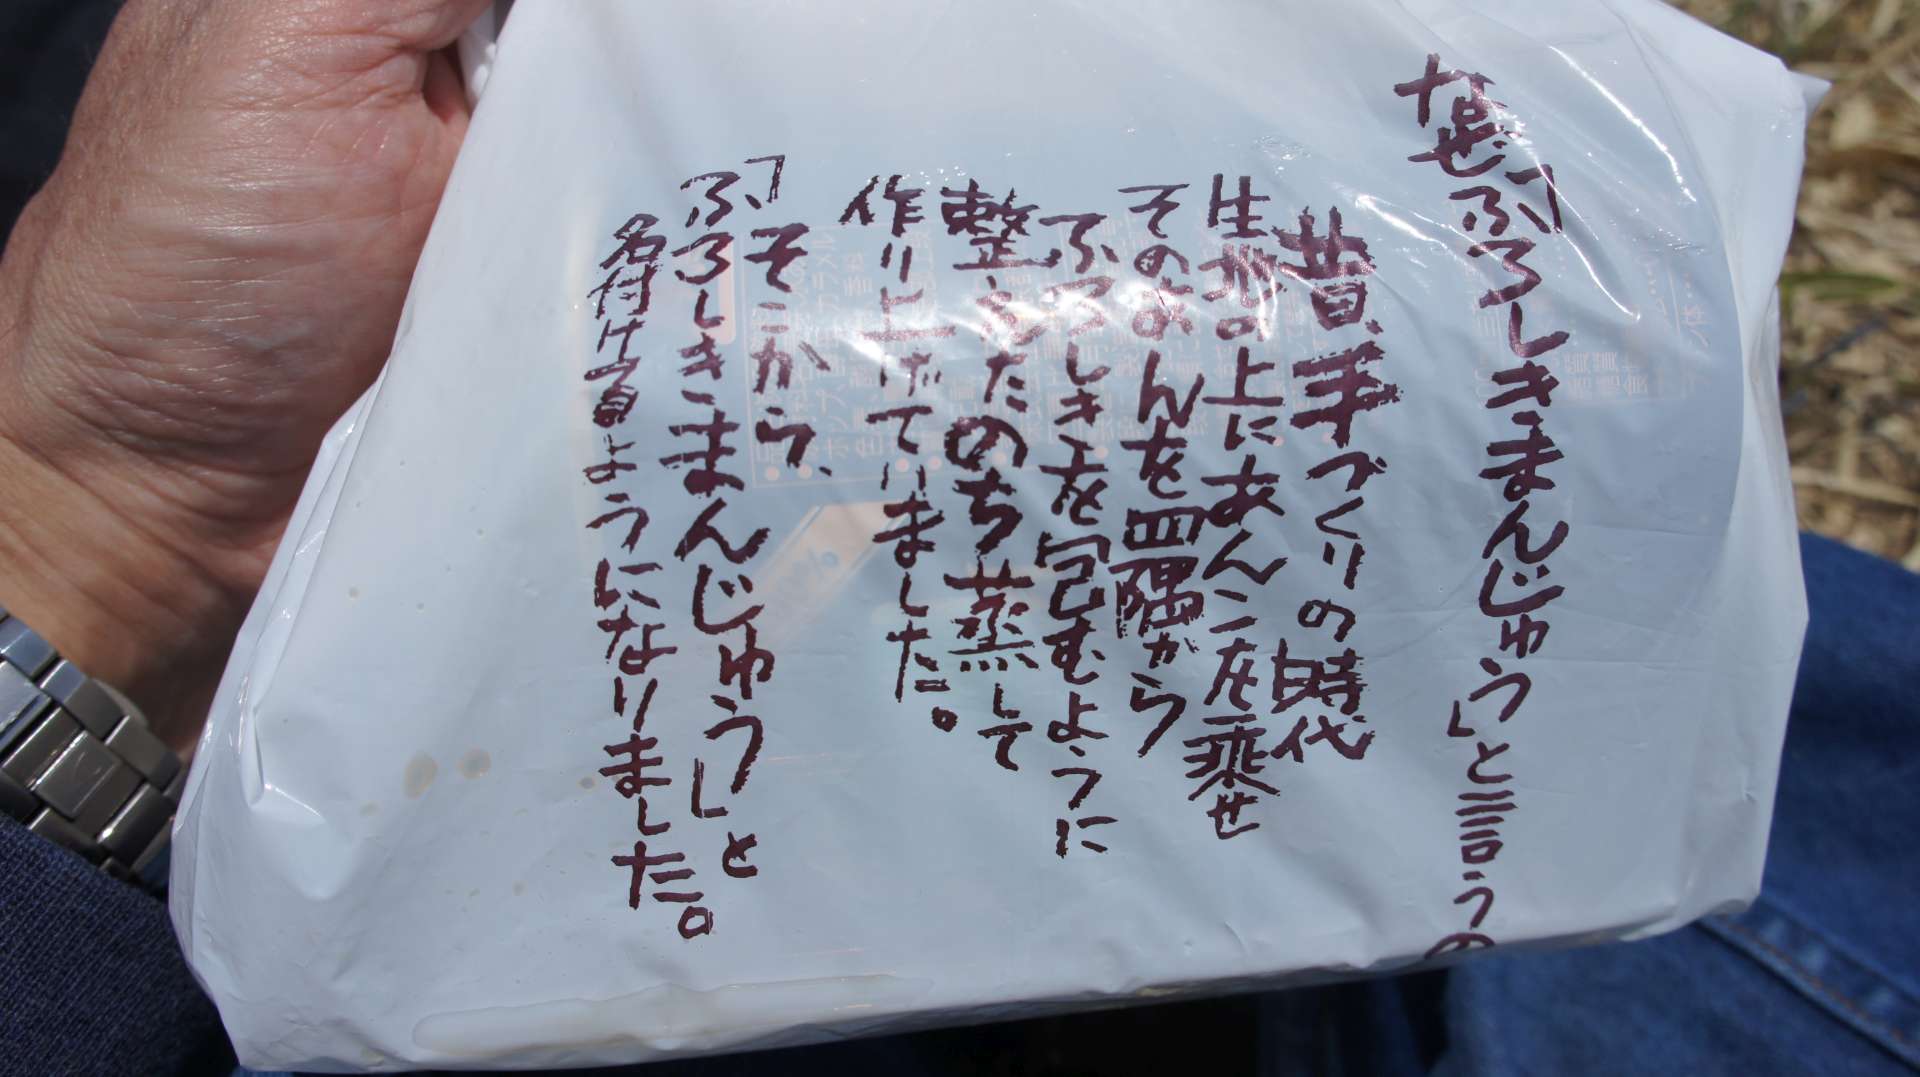 なぜ「ふろしきまんじゅう」と言うの
昔、手づくりの時代
生地の上にあんこを乗せ
そのあんを四隅から
ふろしきを包むように
整えたのち蒸して
作り上げていました。
そこから、
「ふろしきまんじゅう」と
名付けるようになりました。